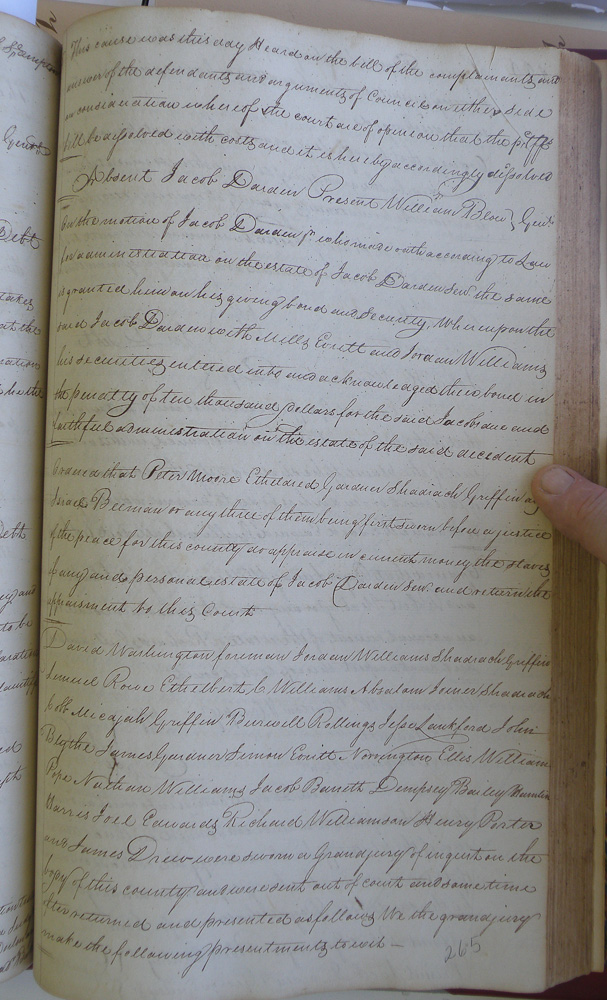 This cause was this day Heard on the bill of the complainants, and
answer of the defendants, and arguments of Councils on either side
on consideration whereof the court are of opinion that the pltffs
bill be dissolved with costs, and it is hereby accordingly dissolved
Absent Jacob Darden Present William Blow, Gent.
On the motion of Jacob Darden jr. who made oath according to Law
for administration on the estate of Jacob Darden Senr. the same
is granted him on his giving bond and security, Whereupon the
said Jacob Darden with Mills Evritt and Jordan Williams
his securities, entered into and acknowledged their bond in
the penalty of ten thousand dollars for the said Jacob's due and
faithful administration on the estate of the said decedent
Ordered that Peter Moore Etheldred Gardner Shadrach Griffin
Israel Beeman or any three of them being first sworn before a justice
of the peace for this county do appraise in current money the slaves
if any and personal estate of Jacob Darden Senr. and return the
appraisment to this Court
David Washington foreman Jordan Williams Shadrach Griffin
Lemuel Rowe Ethelbert Williams Absalom Joiner Shadrach
Cobb Micajah Griffin Burwell Rollings Jesse Lankford John
Blythe James Gardner Simon Evritt Norrington Ellis William
Pope Nathan Williams, Jacob Barrett Dempsey Bailey
Harris Joel Edwards Richard Williamson Henry Porter
and James Drew were sworn a Grandjury of inquest on the
body of this county and were sent out of court and sometime
after returned and presented as follows We the grandjury
make the following presentments, to wit —
265
Debt